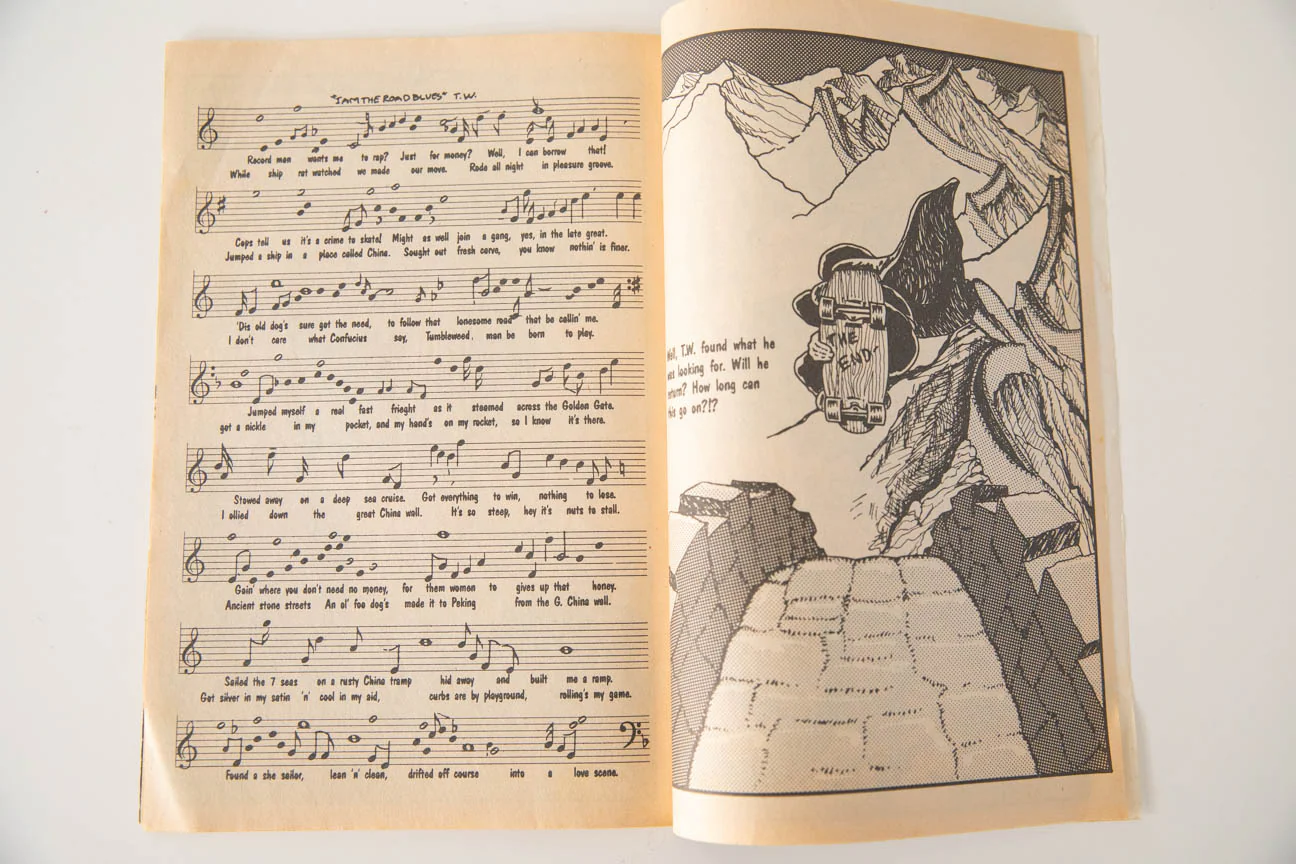 "I AM THE ROAD BLUES" T.W.
Record man wants me to rap? Just for money? Well, I can borrow that!
While ship rat watched we made our move. Rode all night in pleasure groove.
Cops tell us it's a crime to skate! Might as well join a gang, yes, in the late great.
Jumped a ship in a place called China. Sought out fresh carve, you know nothin' is finer.
'Dis old dog's sure got the need, to follow that lonesome road that be callin' me.
I don't care what Confucius say, Tumbleweed, man be born to play.
Jumped myself a real fast frieght as it steamed across the Golden Gate.
got a nickle in my pocket, and my hand's on my rocket, so I know it's there.
Stowed away on a deep sea cruise. Got everything to win, nothing to lose.
I ollied down the great China wall. It's so steep, hey it's nuts to stall.
Goin' where you don't need no money, for them women to gives up that honey.
Ancient stone streets An ol' foo dog's made it to Peking from the G. China wall.
Sailed the 7 seas on a rusty China tramp hid away and built me a ramp.
Got silver in my satin 'n' cool in my aid, curbs are by playground, rolling's my game.
Found a she sailor, lean 'n' clean, drifted off course into a love scene.
T.W. found what he
looking for. Will he
How long can
go on?!?
THE
END